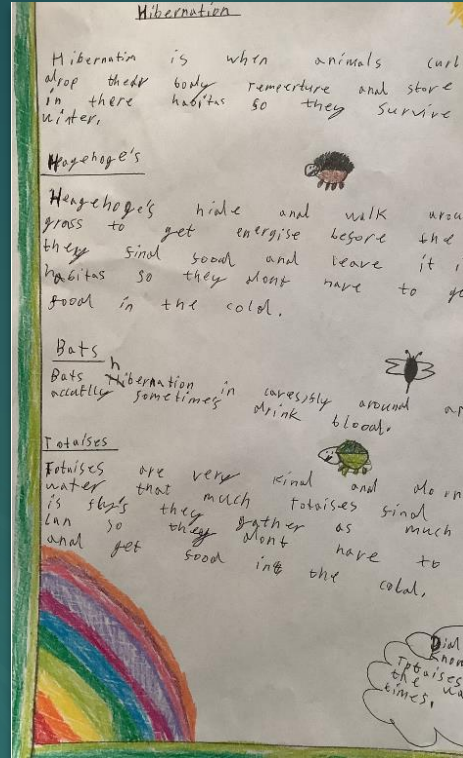 Hibernation
Hibernation is when animals curl
drop thear body Tempreture and store
in there habitas so they survive
winter.
Hagehoge's
Heagehoge's hide and walk arou
grass to get energise before the
they find food and leave it i
habitas so they dont have to ge
food in the cold.
Bats
Bats hibernation in
accutlly sometimes drink around ar
blood.
Totaises
Totaises are very kind and do
water that much Totaises find
is fly's they gather as much
can so they dont have to
and get food in the cold.
Did
know
Totaises
the wa
times.